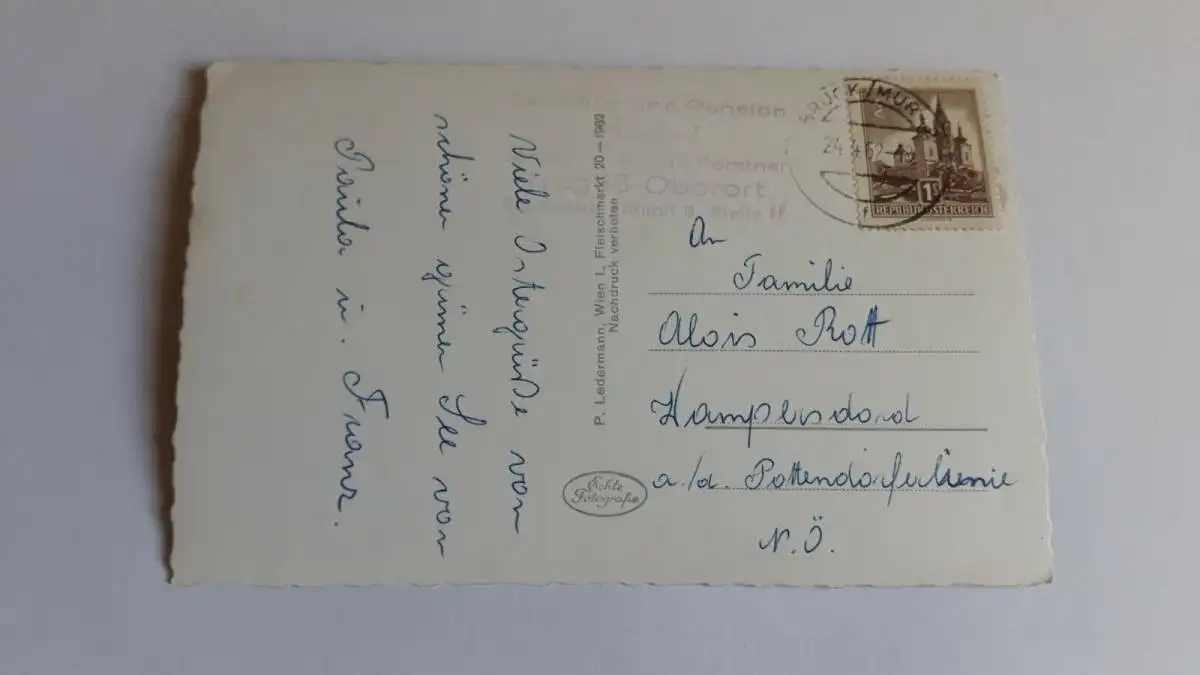 Viele Ostergrüße von
schönen grünen See von
Paula u. Franz.
P. Ledermann, Wien I., Fleischmarkt 20 — 1962
Nachdruck verboten
Echte
Fotografie
und Pension
Forstner
-Oberort
BRUCK/MUR
24.4.62
1S
REPUBLIK ÖSTERREICH
An
Familie
Alois Rott
Wampersdord
a./d. Pottendorferlienie
N.Ö.